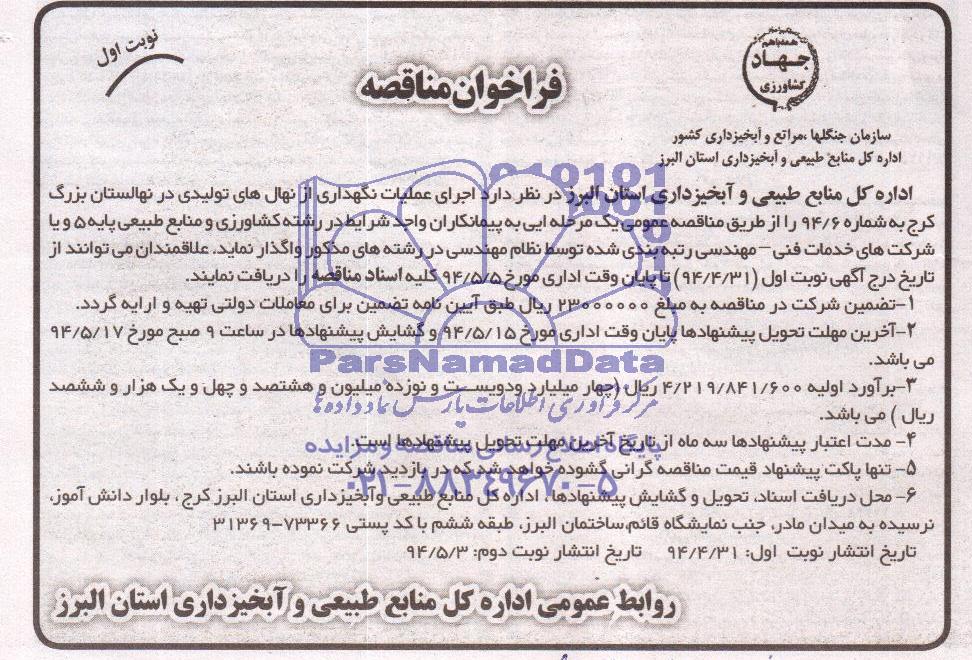 نوبت اول
همه با هم
جهاد
کشاورزی
فراخوان مناقصه
سازمان جنگلها ،مراتع و آبخیزداری کشور
اداره کل منابع طبیعی و آبخیزداری استان البرز
اداره کل منابع طبیعی و آبخیزداری استان البرز در نظر دارد اجرای عملیات نگهداری از نهال های تولیدی در نهالستان بزرگ
کرج به شماره ۹۴/۶ را از طریق مناقصه عمومی یک مرحله ایی به پیمانکاران واجد شرایط در رشته کشاورزی و منابع طبیعی پایه ۵ و یا
شرکت های خدمات فنی – مهندسی رتبه بندی شده توسط نظام مهندسی در رشته های مذکور واگذار نماید. علاقمندان می توانند از
تاریخ درج آگهی نوبت اول (۹۴/۴/۳۱) تا پایان وقت اداری مورخ ۹۴/۵/۵ کلیه اسناد مناقصه را دریافت نمایند.
۱–تضمین شرکت در مناقصه به مبلغ ۲۳۰۰۰۰۰۰۰ ریال طبق آیین نامه تضمین برای معاملات دولتی تهیه و ارایه گردد.
۲–آخرین مهلت تحویل پیشنهادها پایان وقت اداری مورخ ۹۴/۵/۱۵ و گشایش پیشنهادها در ساعت ۹ صبح مورخ ۹۴/۵/۱۷
می باشد.
۳–برآورد اولیه ۴/۲۱۹/۸۴۱/۶۰۰ ریال (چهار میلیارد ودویست و نوزده میلیون و هشتصد و چهل و یک هزار و ششصد
ریال ) می باشد.
۴– مدت اعتبار پیشنهادها سه ماه از تاریخ آخرین مهلت تحویل پیشنهادها است.
۵– تنها پاکت پیشنهاد قیمت مناقصه گرانی گشوده خواهد شد که در بازدید شرکت نموده باشند.
۶– محل دریافت اسناد، تحویل و گشایش پیشنهادها، اداره کل منابع طبیعی وآبخیزداری استان البرز کرج، بلوار دانش آموز،
نرسیده به میدان مادر، جنب نمایشگاه قائم،ساختمان البرز، طبقه ششم با کد پستی ۷۳۳۶۶–۳۱۳۶۹
تاریخ انتشار نوبت اول: ۹۴/۴/۳۱ تاریخ انتشار نوبت دوم: ۹۴/۵/۳
روابط عمومی اداره کل منابع طبیعی و آبخیزداری استان البرز
ParsNamadData
مرکز فرآوری اطلاعات پارس نماد داده ها
پایگاه اطلاع رسانی مناقصه و مزایده
۰۲۱–۸۸۳۴۹۶۷۰–۵